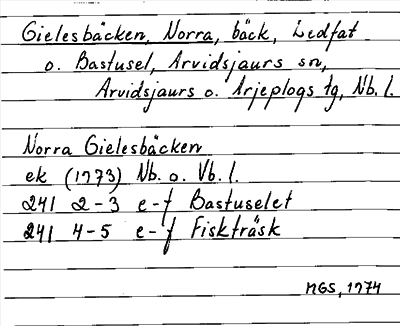 Gielesbäcken, Norra, bäck, Ledfat
o. Bastusel, Arvidsjaurs sn,
Arvidsjaurs o. Arjeplogs tg, Nb. l.
Norra Gielesbäcken
ek (1773) Nb. o. Vb. l.
241 2-3 e-f Bastuselet
241 4-5 e-f Fiskträsk
MGS, 1974